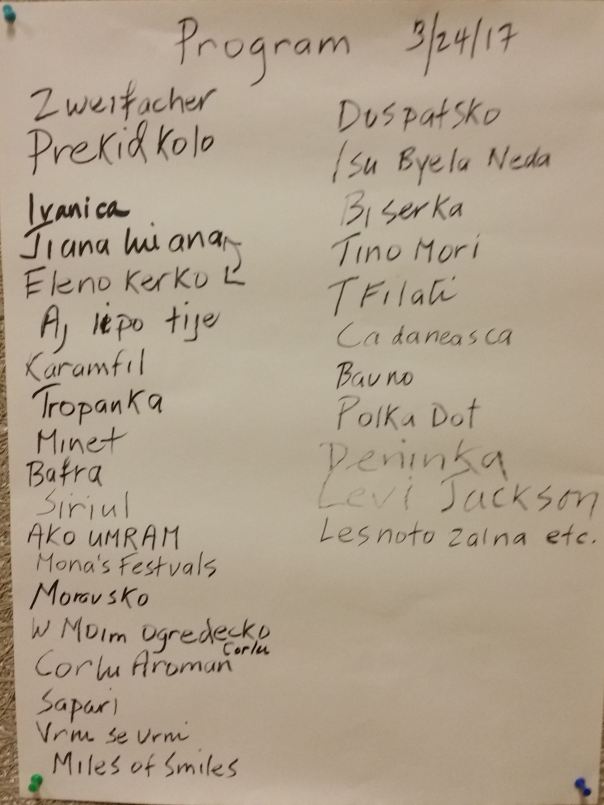 Program 3/24/17
Zweifacher
Prekid Kolo
Ivanica
Jiana lui ana
Eleno Kerko
Aj lepo tije
Karamfil
Tropanka
Minet
Batra
Siriul
AKO UMRAM
Mona's Festvals
Moravsko
W Moim ogredecko
Corlu
Corlu Aroman
Sapari
Vrni se vrni
Miles of Smiles
Duspatsko
Isu Byela Neda
Biserka
Tino Mori
T Filati
Cadaneasca
Bavno
Polka Dot
Deninka
Levi Jackson
Lesnoto Zalna etc.